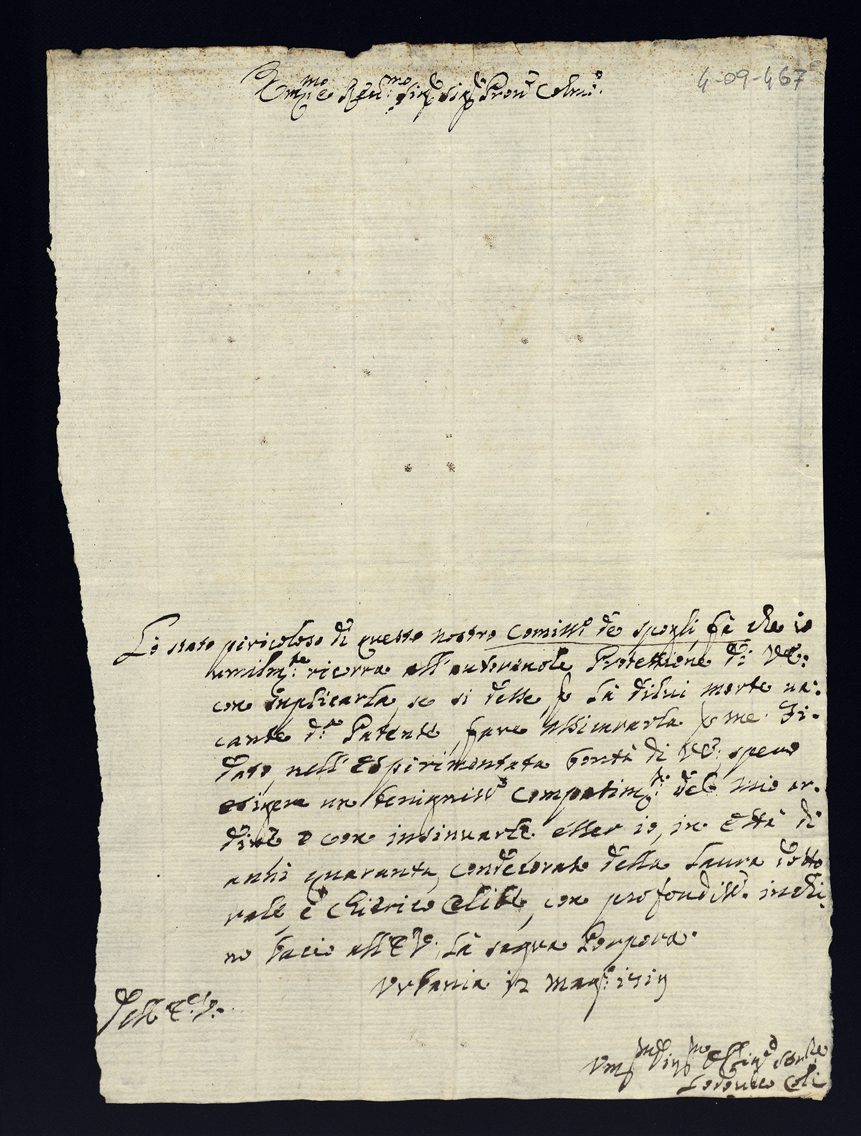 4-09-467
Em.mo e Reu.mo Sig.r Sig.r Pron. Colmo.
Lo stato pericoloso di questo nostro Comiss.o de spogli fà che io
umilm.te ricorra all'autoreuole Protettione di VE:
con suplicarla, se si desse p la dilui morte ua:
cante d.a Patente, farne assicurarla p me. Fi-
dato nell'esperimentata bontà di VE: spero
esigere un benigniss.o compatim.to del mio ar-
dire con insinuarle esser io, in età di
anni quaranta, condecorato della Laura dotto
rale, e Chierico Celibe, con profondiss.o inchi,
no bacio all'E.V. la sagra Porpora.
Urbania 12 mag.o 1719
Dell'E.V.
Um.mo Diu.mo et Oblig.mo Ser.re
Lodouico Coli